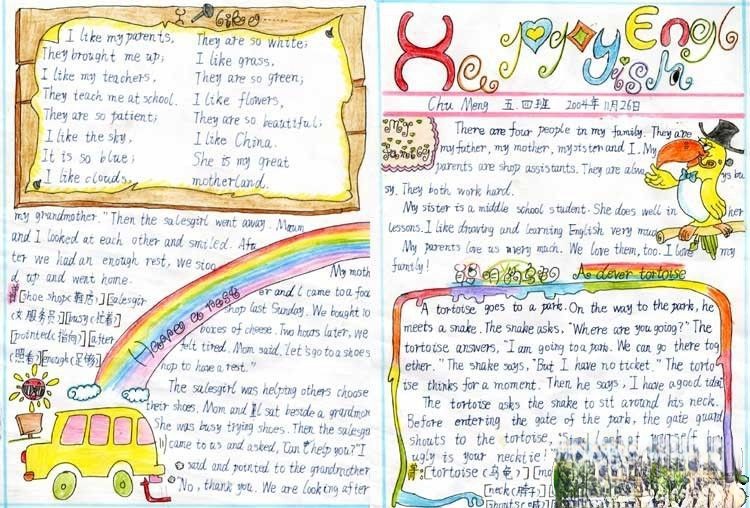 I Like
I like my parents,
They brought me up;
I like my teachers,
They teach me at school.
They are so patient;
I like the sky,
It is so blue;
I like clouds,
They are so white;
I like grass,
They are so green;
I like flowers,
They are so beautiful;
I like China.
She is my great
motherland.
my grandmother." Then the salesgirl went away. Mom
and I looked at each other and smiled. Af
ter we had an enough rest, we stoo
d up and went home.
[shoe shop(鞋店)][salesgir
(女服务员)][busy(忙着)
[pointed(指向)][after
(照看)][enough(足够)]
Have a rest
My moth
er and I came to a foo
shop last Sunday. We bought 10
boxes of cheese. Two hours later, we
felt tired. Mom said, "Let's go to a shoes
hop to have a rest."
The salesgirl was helping others choose
their shoes. Mom and I sat beside a grandmom
She was busy trying shoes. Then the salesgi
came to us and asked, "Can I help you?" I
said and pointed to the grandmother
"No, thank you. We are looking after
Happy English
Chu Meng 五四班 2004年11月26日
My
There are four people in my family. They are
my father, my mother, my sister and I. My
parents are shop assistants. They are alway
ys bu
sy. They both work hard.
My sister is a middle school student. She does well in her
lessons. I like drawing and learning English very muc
My parents love us very much. We love them, too. I love my
family!
聪明的乌龟 A clever tortoise
A tortoise goes to a park. On the way to the park, he
meets a snake. The snake asks, "Where are you going?" The
tortoise answers, "I am going to a park. We can go there tog
ether." The snake says, "But I have no ticket." The torto
ise thinks for a moment. Then he says, I have a good idea!
The tortoise asks the snake to sit around his neck.
Before entering the gate of the park, the gate guard
shouts to the tortoise,
ugly is your necktie!
[tortoise(乌龟)][mo
[neck(脖子)]
[shouts(喊)